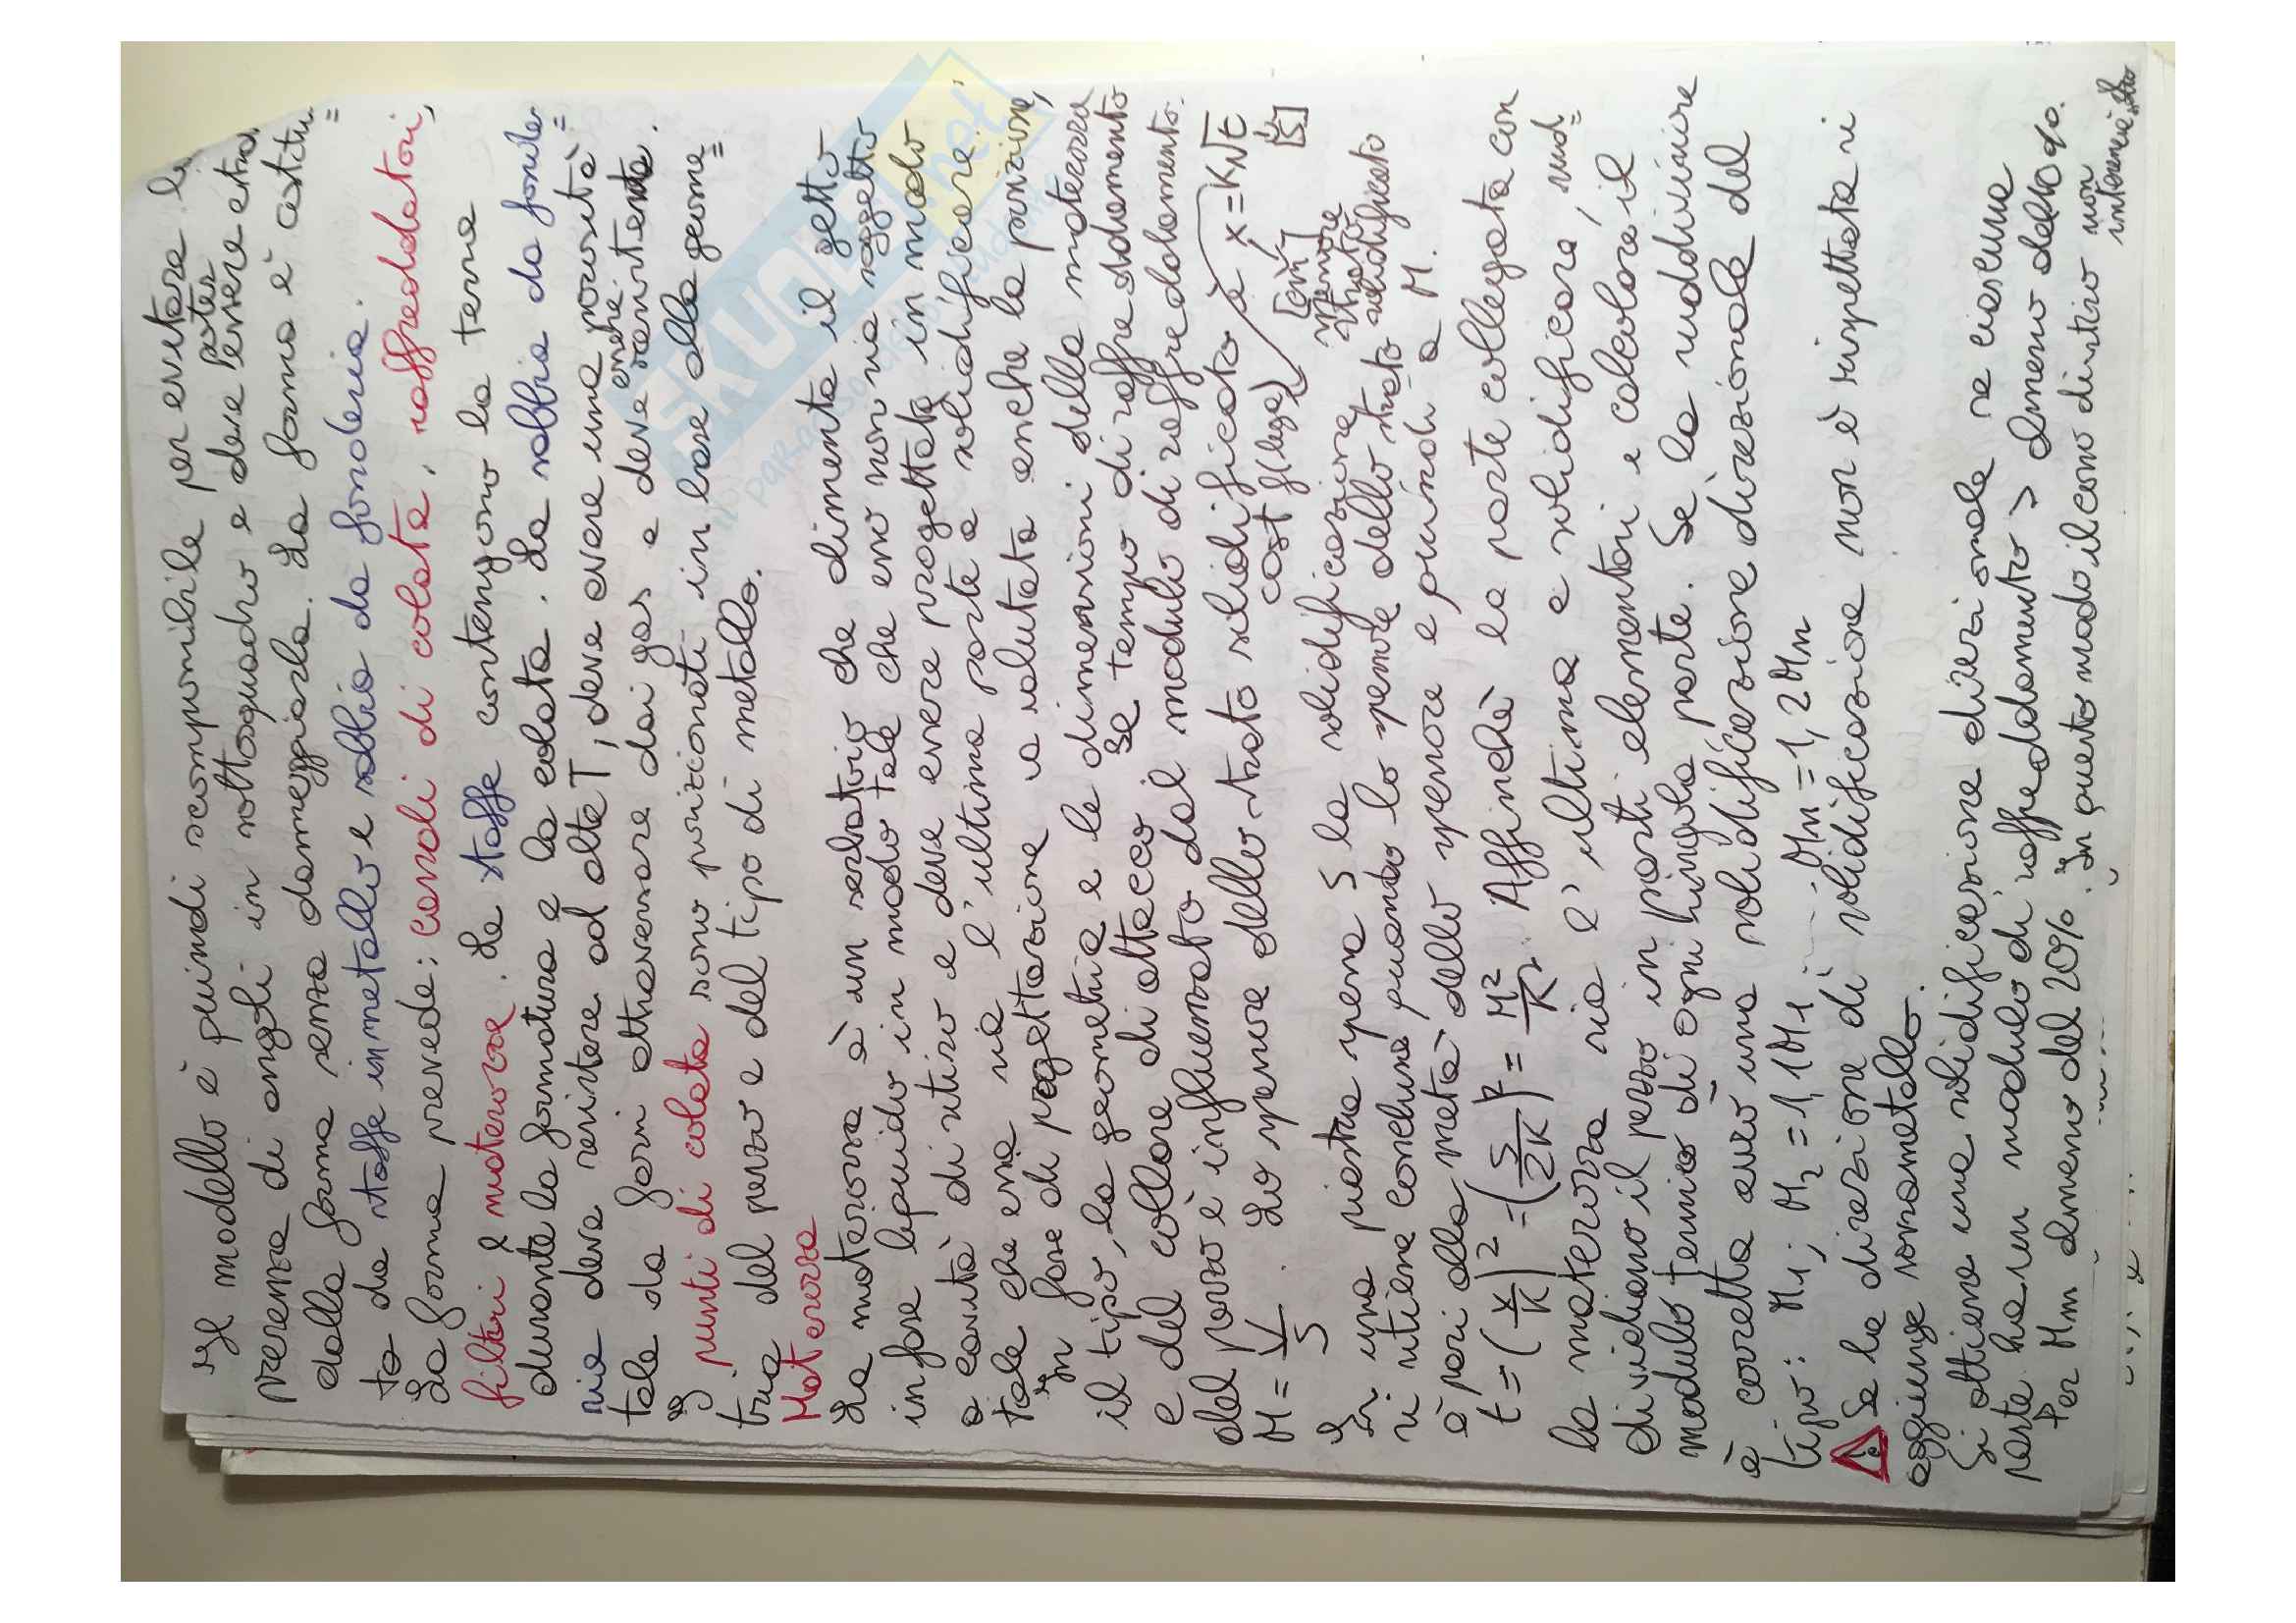 Il modello è quindi scomponibile per evitare la
presenza di angoli in sottosquadro e deve poter essere estrat
dalla forma senza danneggiarla. La forma è costitui=
ta da staffe in metallo e sabbia da fonderia.
La forma prevede: canali di colata, raffreddatori,
filtri e materozze. Le staffe contengono la terra
durante la formatura e la colata. La sabbia da fonde=
ria deve resistere ad alte T, deve avere una porosità
tale da farsi attraversare dai gas e deve anche
I punti di colata sono posizionati in base alla geome=
tria del pezzo e del tipo di metallo.
Materozza
La materozza è un serbatoio che alimenta il getto
in fase liquida in modo tale che esso non sia soggetto
a cavità di ritiro e deve essere progettata in modo
tale che essa sia l'ultima parte a solidificare.
In fase di progettazione va valutata anche la posizione,
il tipo, la geometria e le dimensioni della materozza
e del collare di attacco. Il tempo di raffreddamento
del pezzo è influenzato dal modulo di raffreddamento.
M = V/S . Lo spessore dello strato solidificato è x=K√t
cost f(lega) [cm] spessore strato solidificato [s]
In una piastra spessa S la solidificazione
si ritiene conclusa quando lo spessore dello strato
è pari alla metà dello spessore e quindi a M.
t=(x/K)²=(S/2K)²=M²/K². Affinchè la parte collegata con
la materozza sia l'ultima a solidificare, sud=
dividiamo il pezzo in parti elementari e calcolare il
modulo termico di ogni singola parte. Se la suddivisione
è corretta avrò una solidificazione direzionale del
tipo: M1; M2=1,1M1 ... Mm=1,2Mn
Se la direzione di solidificazione non è rispettata si
aggiunge sovrametallo.
Si ottiene una solidificazione direzionale se ciascuna
parte ha un modulo di raffreddamento > almeno del 10%.
Per Mm almeno del 20%. In questo modo il cono di ritiro non